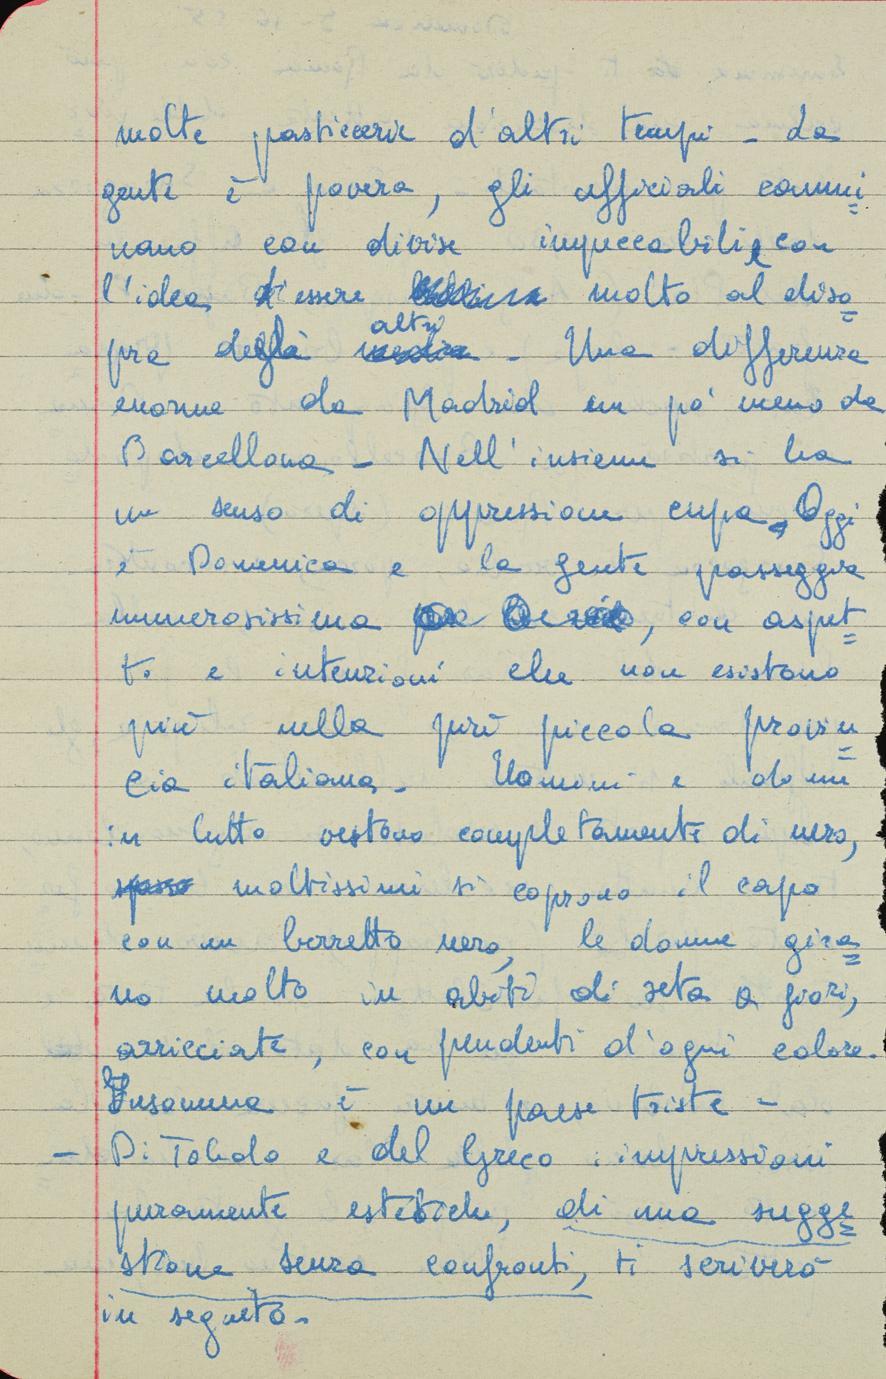 molte pasticcerie d'altri tempi - La
gente è povera, gli ufficiali cammi=
nano con divise impeccabili e con
l'idea d'essere molto al diso=
pra degli altri - Una differenza
enorme da Madrid un po' meno da
Barcellona - Nell'insieme si ha
un senso di oppressione cupa, Oggi
è Domenica e la gente passeggia
numerosissima, con aspet=
ti e intenzioni che non esistono
più nella più piccola provin=
cia italiana. Uomini e donne
in lutto vestono completamente di nero,
moltissimi si coprono il capo
con un berretto nero, le donne gira=
no molto in abiti di seta a fiori,
arricciate, con pendenti d'ogni colore.
Insomma è un paese triste -
- Di Toledo e del Greco: impressioni
puramente estetiche, di una sugge=
stione senza confronti, ti scriverò
in seguito.